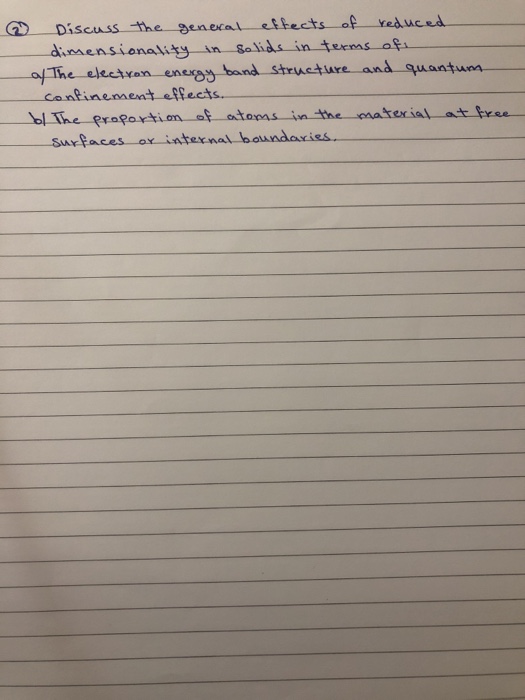 ② Discuss the general effects of reduced
dimensionality in solids in terms of:
a/ The electron energy band structure and quantum
confinement effects.
b/ The proportion of atoms in the material at free
surfaces or internal boundaries.